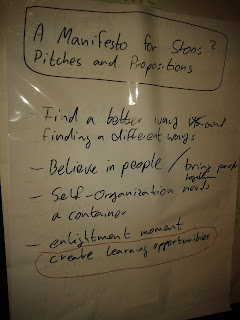 A Manifesto for Stoos?
Pitches and Propositions
- Find a better way vs and
finding a different ways
- Believe in people / bring people
together
- Self-Organization needs
a container
- enlightment moment
create learning opportunities